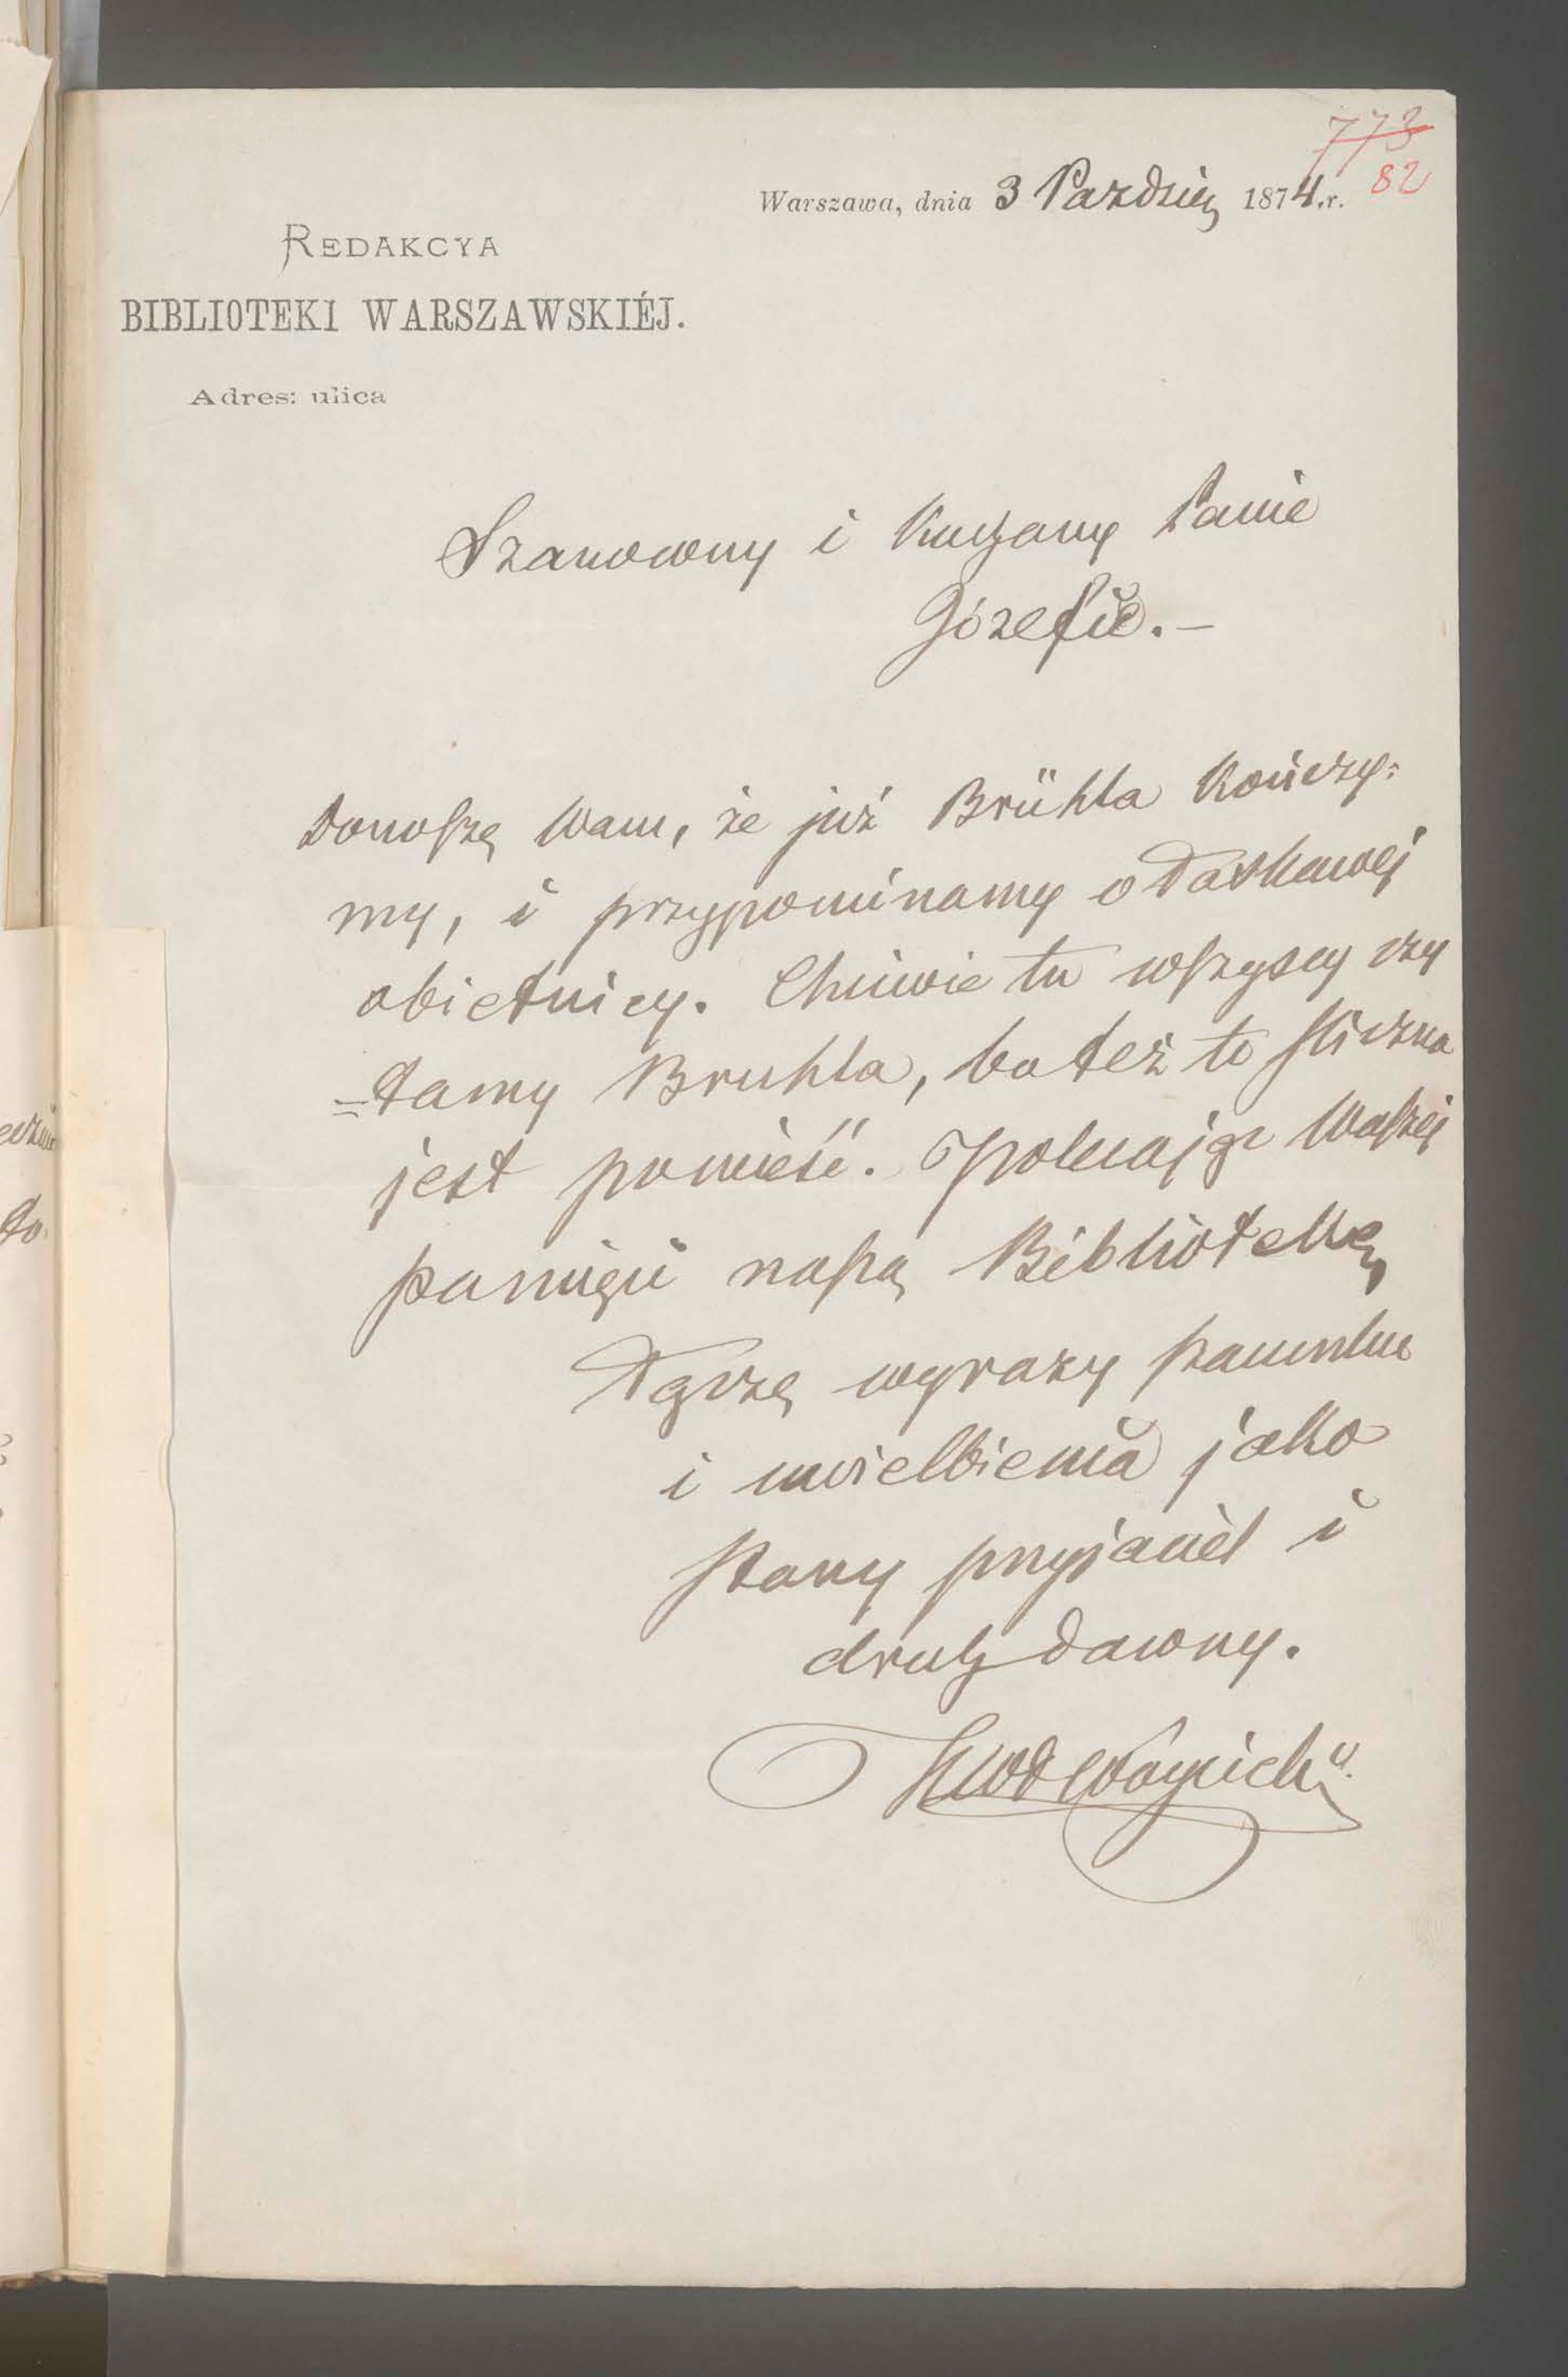 773
82
Warszawa, dnia 3 Paździer 1874.r.
REDAKCYA
BIBLIOTEKI WARSZAWSKIÉJ.
Adres: ulica
Szanowny i Kochany Panie
Józefie. —
Donoszę Wam, że już Brühla kończy=
my, i przypominamy o łaskawej
obietnicy. Chciwie tu wszyscy czy
=tamy Bruhla, bo też to śliczna
jest powieść. Polecając Waszej
pamięci naszą Bibliotekę
Łączę wyrazy szacunku
i uwielbienia jako
stary przyjaciel i
druh dawny.
KWł Wóycicki